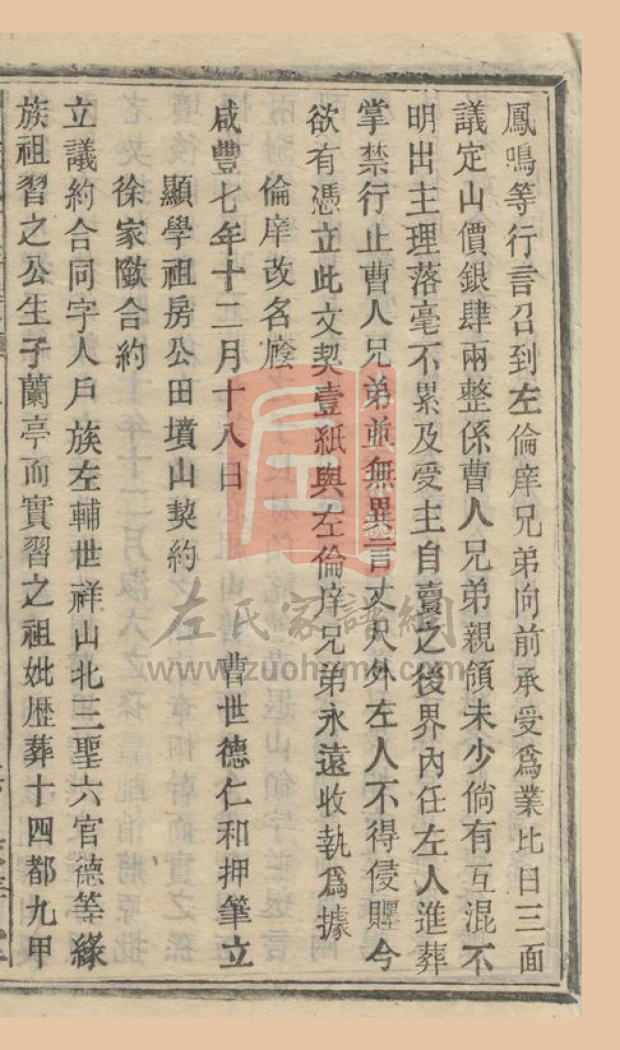 鳳鳴等行言召到左倫庠兄弟向前承受爲業比日三面
議定山價銀肆兩整係曹人兄弟親領未少倘有互混不
明出主理落毫不累及受主自賣之後界內任左人進葬
掌禁行止曹人兄弟並無異言丈尺外左人不得侵賍今
欲有憑立此文契壹紙與左倫庠兄弟永遠收執爲據
倫庠改名
咸豐七年十二月十八日 曹世德仁和押筆立
顯學祖房公田墳山契約
徐家歞合約
立議約合同字人戶族左輔世祥山北三聖六官德等緣
族祖習之公生子蘭亭而實習之祖妣歷葬十四都九甲
左氏家譜網
www.zuohome.com